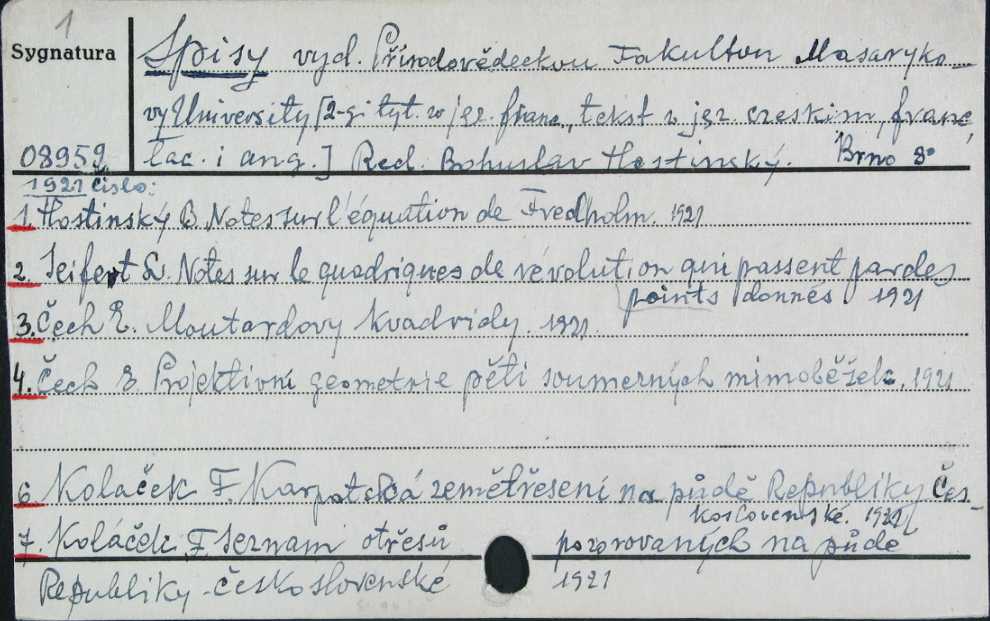 1
Sygnatura
Spisy vyd. Přírodovědeckou Fakultou Masaryko-
vy University [2-gi tyt. w jęz. franc., tekst w jęz. czeskim, franc
łac. i ang.] Red. Bohuslav Hostinský. Brno 8°
08959
1921 číslo:
1. Hostinský B. Notes sur l'équation de Fredholm. 1921
2. Seifert L. Notes sur le quadriques de révolution qui passent par des
points donnés 1921
3. Čech E. Moutardovy kvadriky. 1921.
4. Čech E Projektivní geometrie pěti soumerných mimoběžek. 1921
6. Koláček F. Karpatská zemětřesení na půdě Republiky Čes-
koslovenské. 1921
7. Koláček F Seznam otřesů pozorovaných na půdě
Republiky-československé 1921